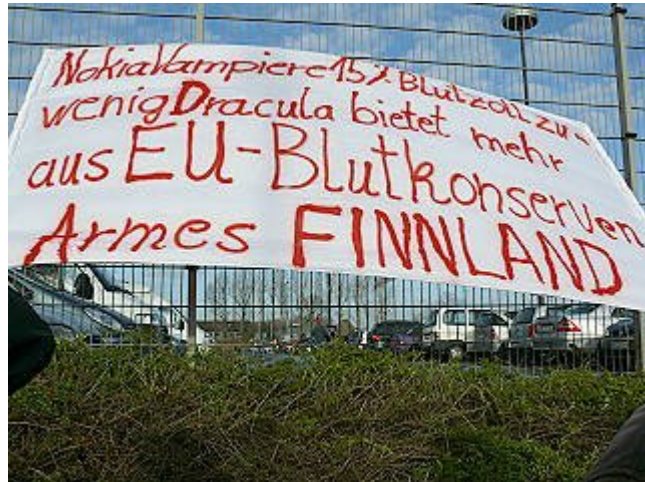 NokiaVampiere 15% Blutzoll zu-
wenig Dracula bietet mehr
aus EU-Blutkonserven
Armes FINNLAND